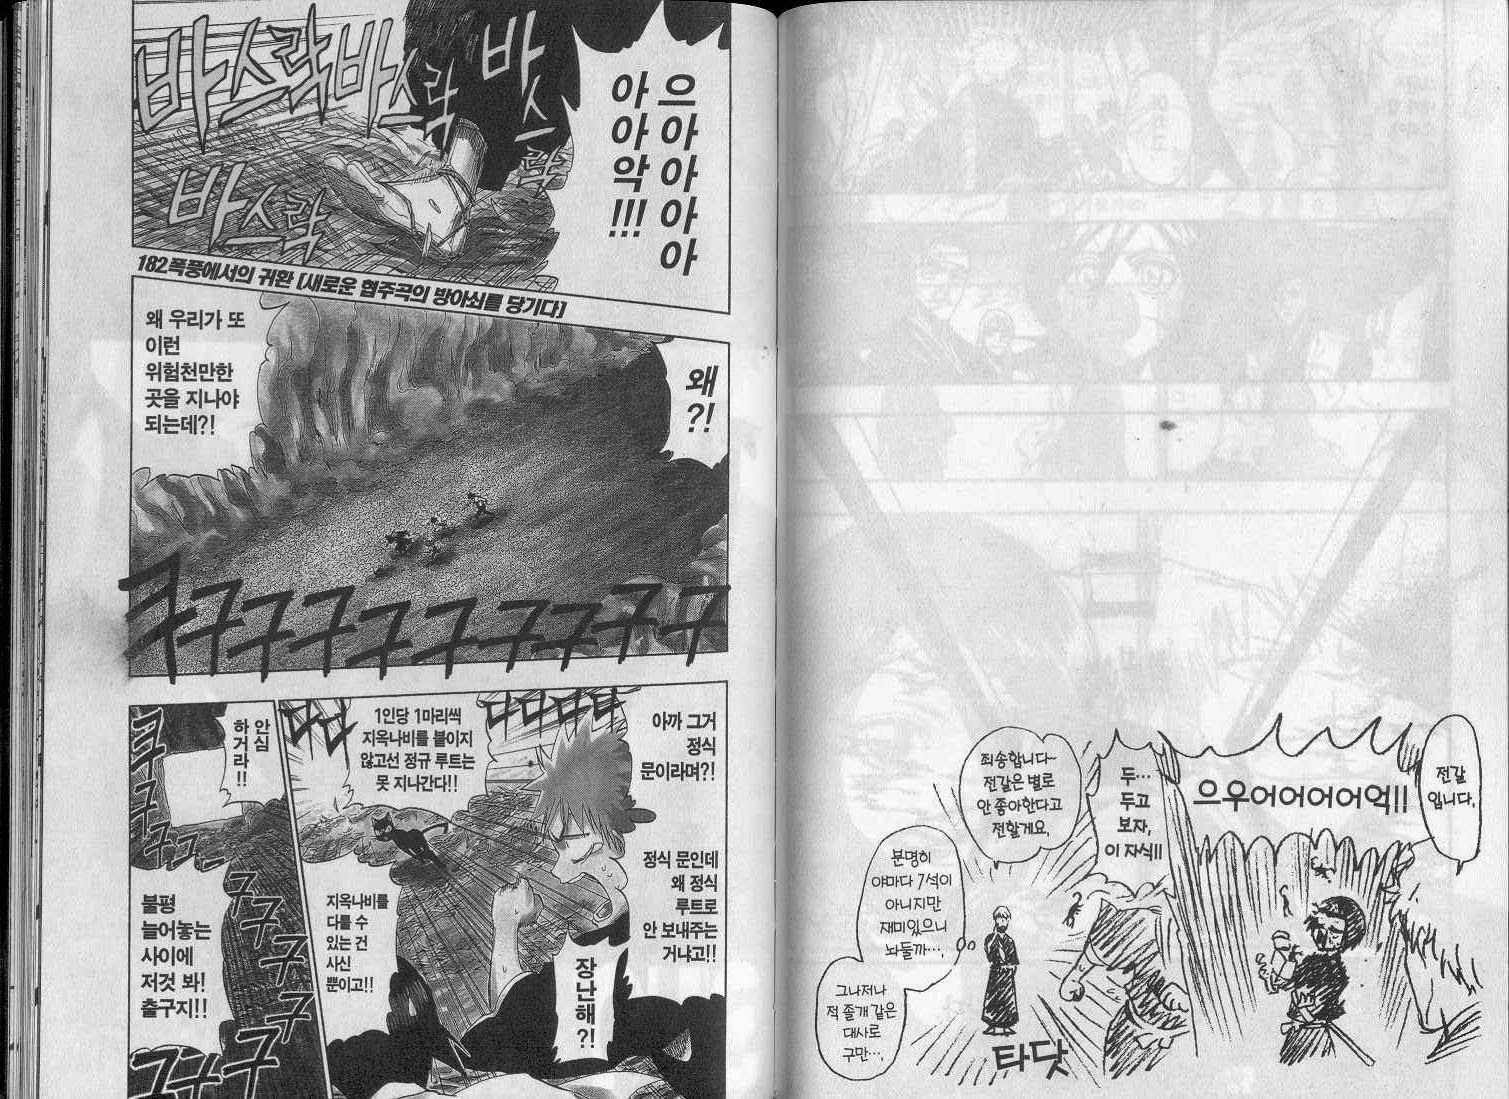 으아아아아
아아악!!!
바스락바스락
바스락
바스락
182.폭풍에서의 귀환 [새로운 협주곡의 방아쇠를 당기다]
왜
?!
왜 우리가 또
이런
위험천만한
곳을 지나야
되는데?!
구구구구구구구구구
아까 그거
정식
문이라며?!
다다다다다
1인당 1마리씩
지옥나비를 붙이지
않고선 정규 루트는
못 지나간다!!
다다
정식 문인데
왜 정식
루트로
안 보내주는
거냐고!!
장난해?!
지옥나비를
다룰 수
있는 건
사신
뿐이고!!
안심
하거라!!
구구구
불평
늘어놓는
사이에
저것 봐!
출구지!!
구구구구
구구구
전갈
입니다.
으우어어어어억!!
두…
두고
보자,
이 자식!!
죄송합니다~
전갈은 별로
안 좋아한다고
전할게요.
분명히
야마다 7석이
아니지만
재미있으니
놔둘까….
그나저나
적 졸개 같은
대사로
구만….
타닷